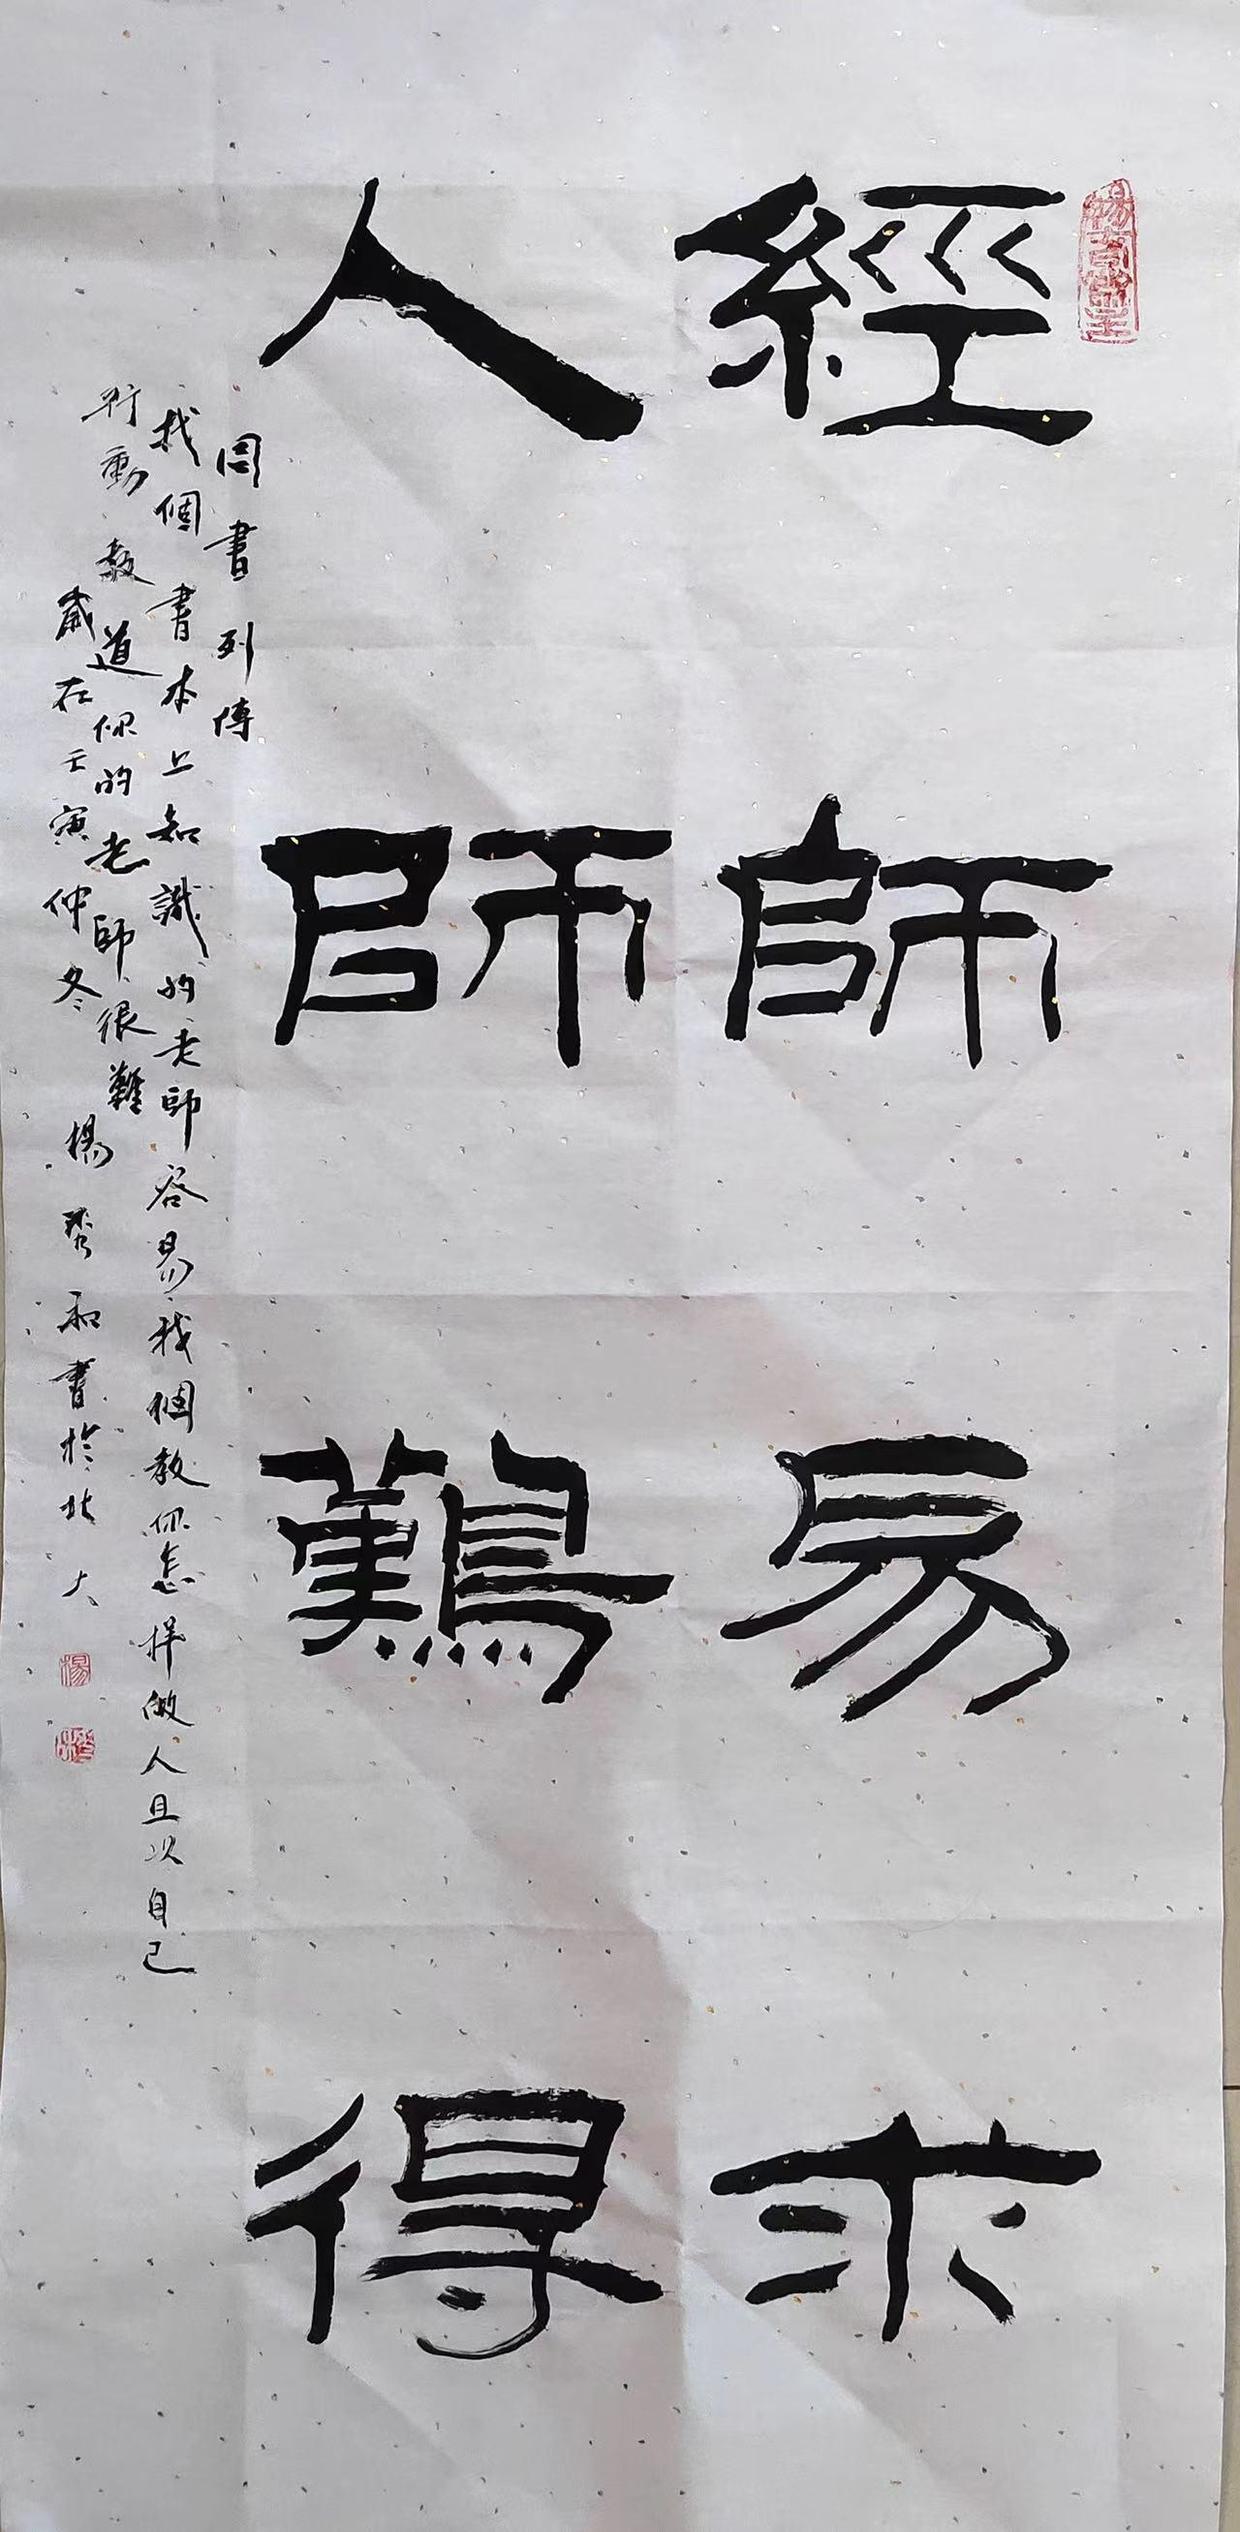 經師易求
人師難得
周書列傳
找個書本上知識的老師容易找個教你怎样做人且以自己
行動教道你的老師很難
歲在壬寅仲冬 楊秀和書於北大
楊